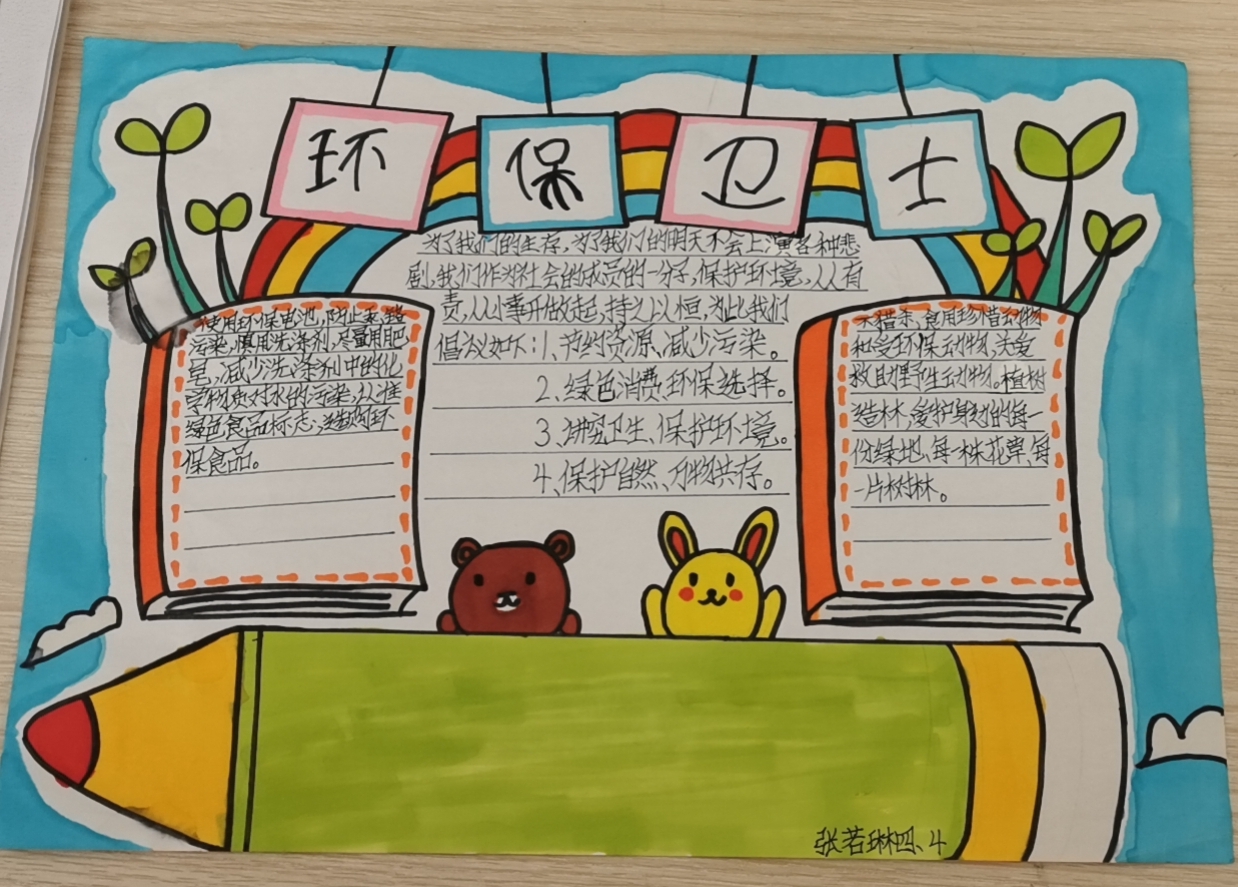 环保卫士
为了我们的生存，为了我们的明天不会上演各种悲
剧，我们作为社会的成员的一分子，保护环境，人人有
责，从小事开做起，持之以恒，为此我们
倡议如下：1、节约资源、减少污染。
2、绿色消费，环保选择。
3、讲究卫生、保护环境。
4、保护自然、万物共存。
使用环保电池，防止汞镉
污染，慎用洗涤剂，尽量用肥
皂，减少洗涤剂中的化
学物质对水的污染，认准
绿色食品标志，选购环
保食品。
不猎杀、食用珍惜动物
和受环保动物，关爱
救助野生动物。植树
造林，爱护身边的每一
份绿地、每一株花草、每
一片树林。
张若琳四、4